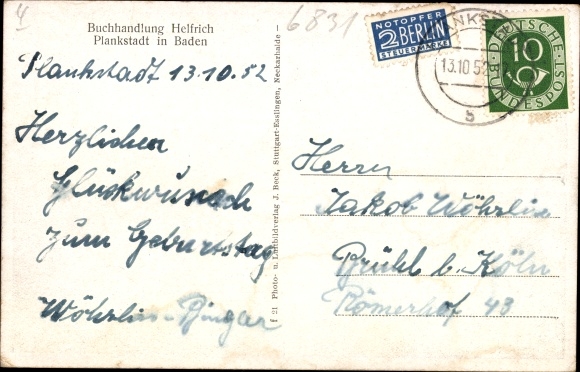 4
6831
Buchhandlung Helfrich
Plankstadt in Baden
Plankstadt 13.10.52
Herzlichen
Glückwunsch
zum Geburtstag
Wöhrlin-
f 21 Photo- u. Luftbildverlag J. Beck, Stuttgart-Esslingen, Neckarhalde -
NOTOPFER
2 BERLIN
STEUERMARKE
13.10.52
b
DEUTSCHE
BUNDESPOST
10
Herrn
Jakob Wöhrlin
Brühl b. Köln
Römerhof 43